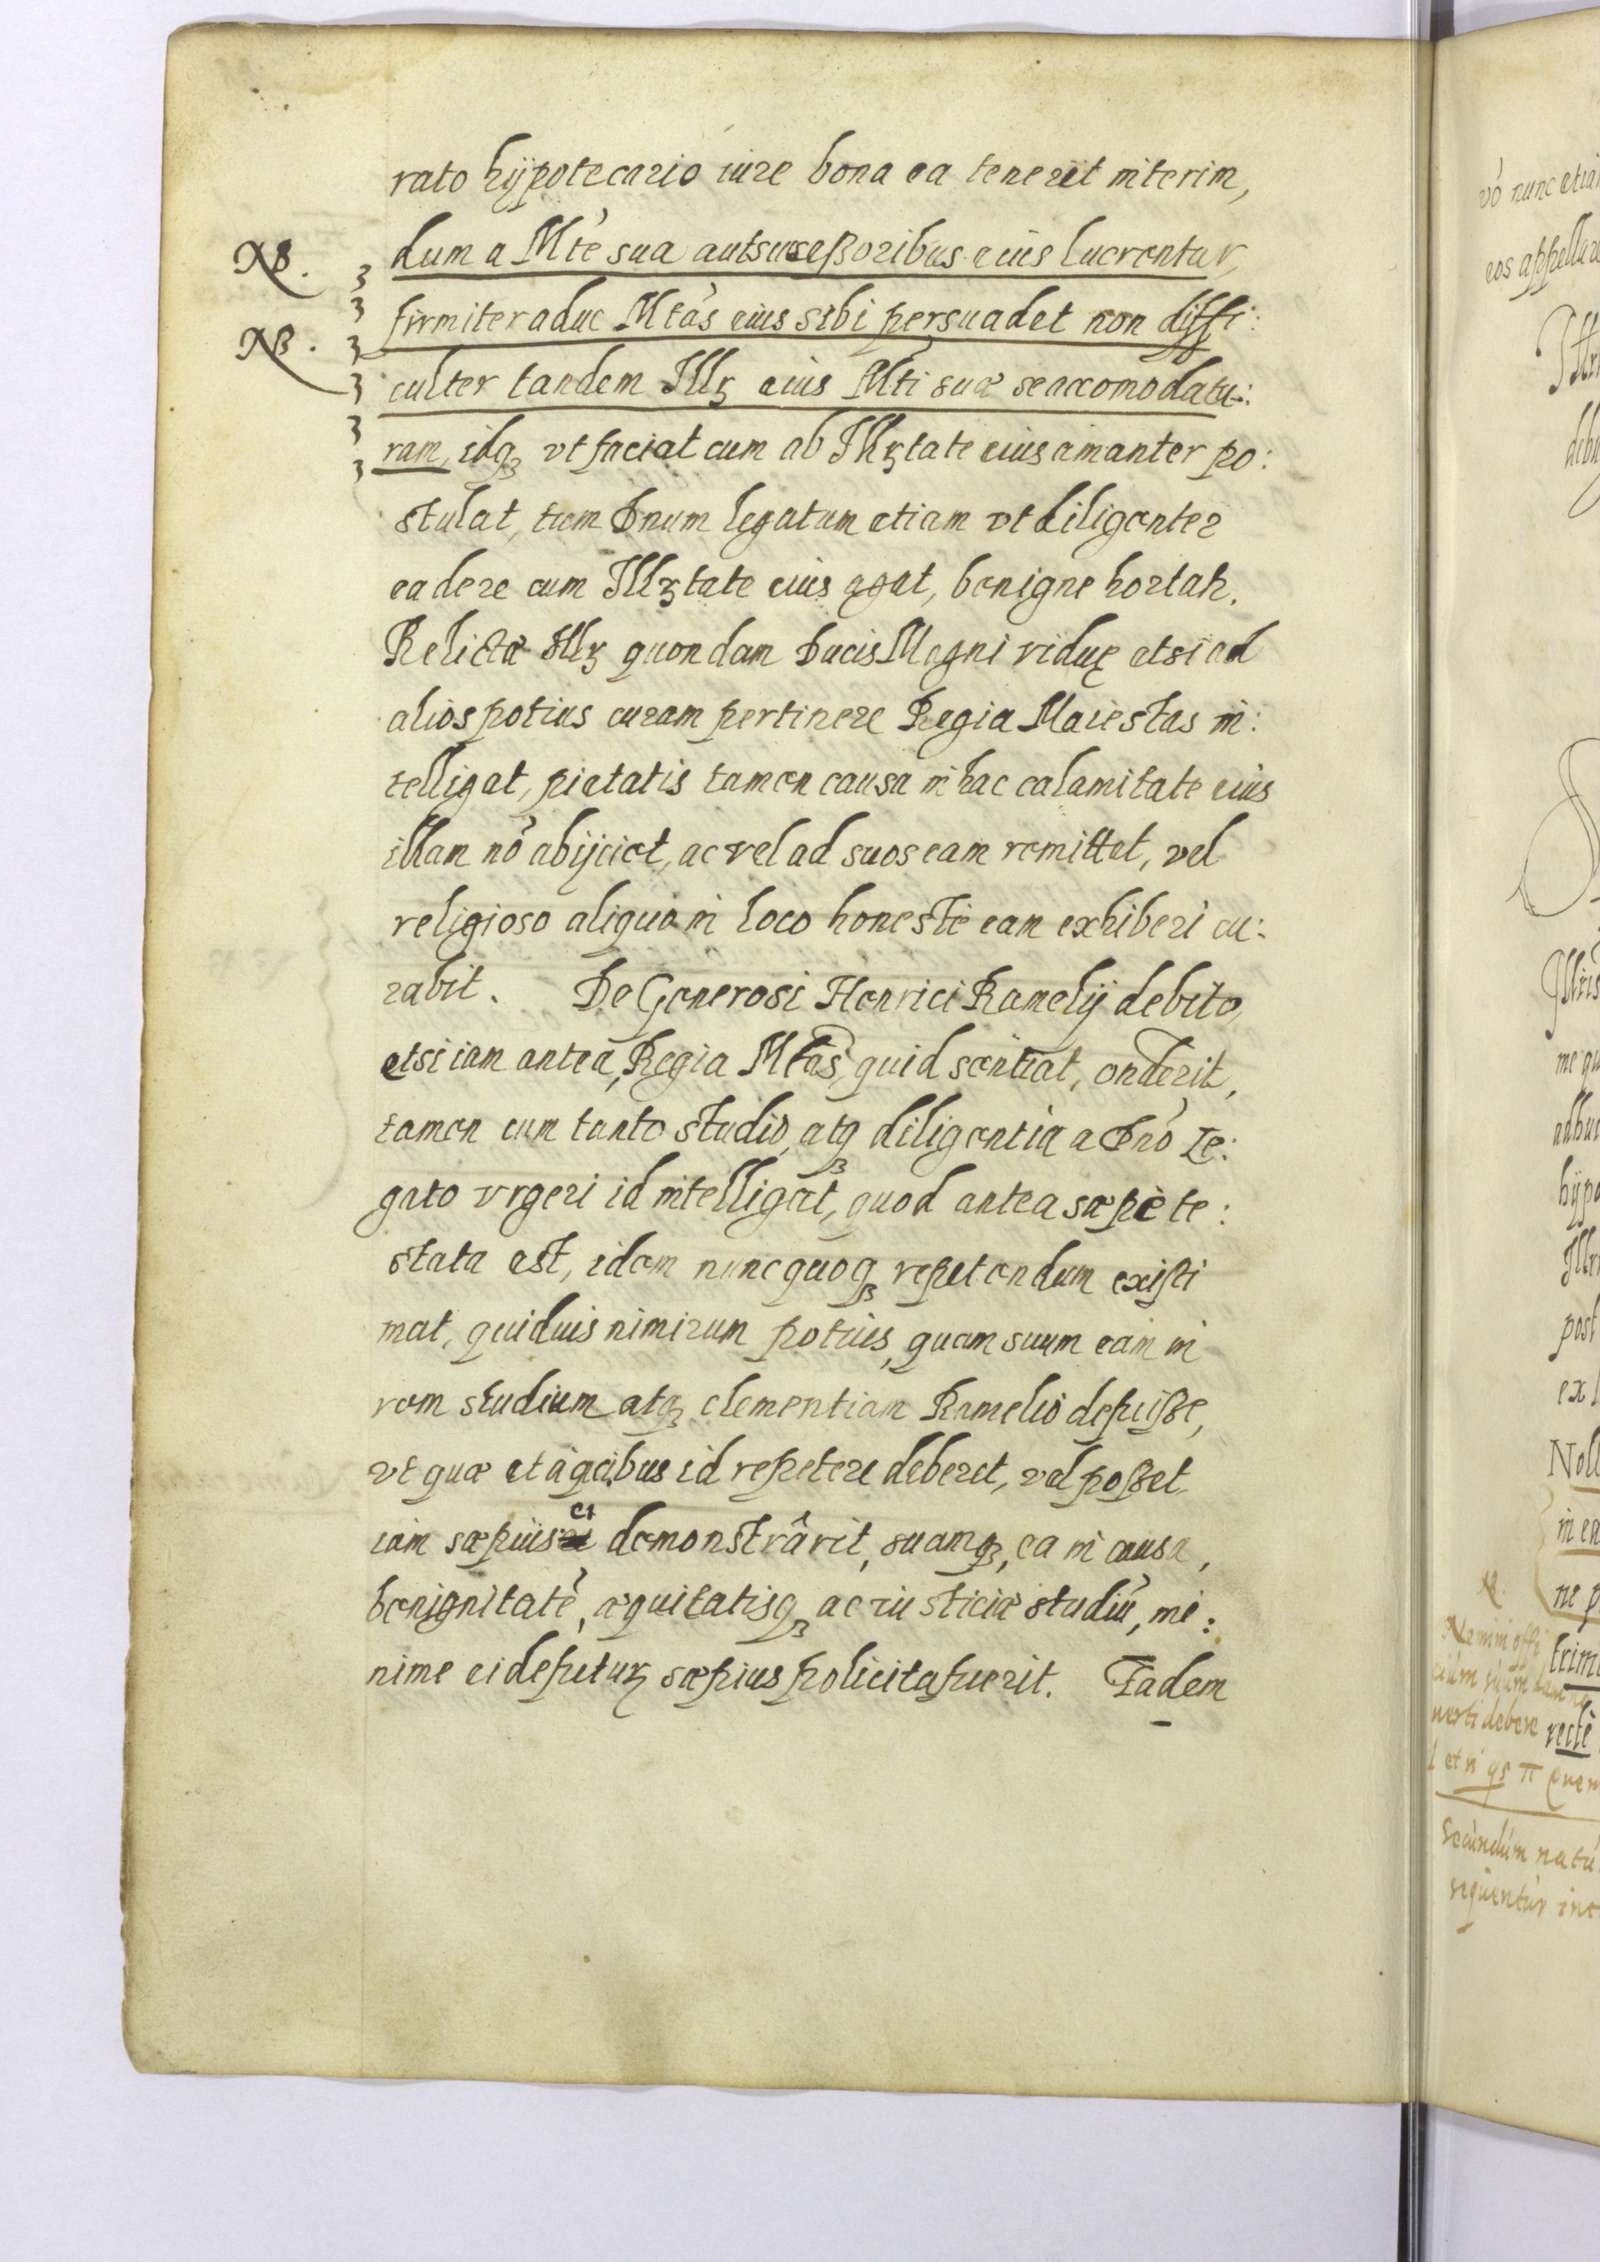 rato hijpotecario iure bona ea tenerit interim,
NB. dum a Mte sua aut sucessoribus eius lucrentur,
firmiter aduc Mtas eius sibi persuadet non diffi:
NB. culter tandem Illꝫ eius Mti suæ se accomodatu:
ram, idqꝫ vt faciat cum ab Illꝫtate eius amanter po:
stulat, tum Dnum legatum etiam vt diligenter
ea de re cum Illꝫtate eius agat, benigne hortatr.
Relictæ Illꝫ quondam Ducis Magni viduę etsi ad
alios potius curam pertinere Regia Maiestas in:
telligat, pietatis tamen causa in hac calamitate eius
illam nō abijciet, ac vel ad suos eam remittet, vel
religioso aliquo in loco honestè eam exhiberi cu:
rabit. De Generosi Henrici Ramelij debito,
etsi iam antea, Regia Mtas, quid sentiat, onderit,
tamen cum tanto studio, atqꝫ diligentia a Dno Le:
gato vrgeri id intelligat, quod antea sæpè te:
stata est, idem nunc quoqꝫ repetendum existi
mat, quiduis nimirum potius, quam suum eam in
rem studium atqꝫ clementiam Ramelio defuisse,
vt quæ et à quibus id repetere deberet, vel posset
iam sæpius et demonstrârit, suamqꝫ, ea in causa,
benignitatē, æquitatisqꝫ ac iusticiæ studiū, mi:
nime ei defuturꝫ sæpius policita fuerit. Eadem
vō nunc etia
eos appella
debi
Illris
me qu
adhuc
hijpo
Illr
post
ex l
Noll
in ea
ne p
trim
rectè
Nemini offi
cium suum dam
nerti debere
secundum natu
sequentur inc